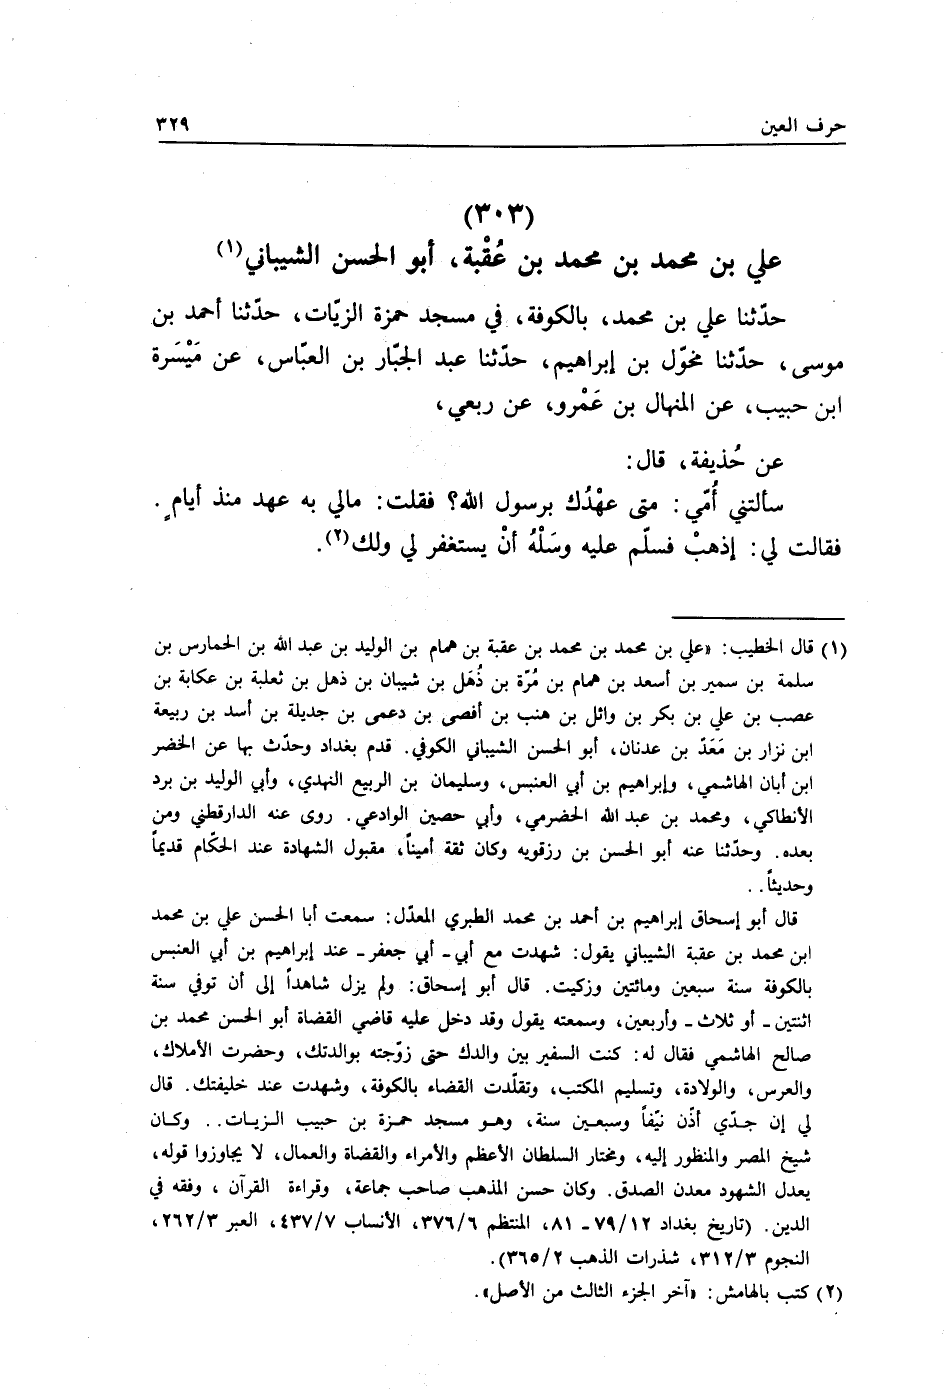 حرف العين ٣٢٩
(٣٠٣)
علي بن محمد بن محمد بن عُقْبة، أبو الحسن الشيباني(١)
حدّثنا علي بن محمد، بالكوفة، في مسجد حمزة الزيّات، حدّثنا أحمد بن
موسى، حدّثنا مخوّل بن إبراهيم، حدّثنا عبد الجبّار بن العبّاس، عن مَيْسَرة
ابن حبيب، عن المنهال بن عَمْرو، عن ربعي،
عن حُذيفة، قال:
سألتني أُمّي: متى عهْدُك برسول الله؟ فقلت: مالي به عهد منذ أيامٍ.
فقالت لي: إذهبْ فسلّم عليه وسَلْهُ أنْ يستغفر لي ولك(٢).
(١) قال الخطيب: «علي بن محمد بن محمد بن عقبة بن همام بن الوليد بن عبد الله بن الحمارس بن
سلمة بن سمير بن أسعد بن همام بن مُرّة بن ذُهَل بن شيبان بن ذهل بن ثعلبة بن عكابة بن
عصب بن علي بن بكر بن وائل بن هنب بن أفصى بن دعمى بن جديلة بن أسد بن ربيعة
ابن نزار بن مَعَدّ بن عدنان، أبو الحسن الشيباني الكوفي. قدم بغداد وحدّث بها عن الخضر
ابن أبان الهاشمي، وإبراهيم بن أبي العنبس، وسليمان بن الربيع النهدي، وأبي الوليد بن برد
الأنطاكي، ومحمد بن عبد الله الحضرمي، وأبي حصين الوادعي. روى عنه الدارقطني ومن
بعده. وحدّثنا عنه أبو الحسن بن رزقويه وكان ثقة أميناً، مقبول الشهادة عند الحكّام قديماً
وحديثاً..
قال أبو إسحاق إبراهيم بن أحمد بن محمد الطبري المعدّل: سمعت أبا الحسن علي بن محمد
ابن محمد بن عقبة الشيباني يقول: شهدت مع أبي- أبي جعفر- عند إبراهيم بن أبي العنبس
بالكوفة سنة سبعين ومائتين وزكيت. قال أبو إسحاق: ولم يزل شاهداً إلى أن توفي سنة
اثنتين- أو ثلاث- وأربعين، وسمعته يقول وقد دخل عليه قاضي القضاة أبو الحسن محمد بن
صالح الهاشمي فقال له: كنت السفير بين والدك حتى زوّجته بوالدتك، وحضرت الأملاك،
والعرس، والولادة، وتسليم المكتب، وتقلّدت القضاء بالكوفة، وشهدت عند خليفتك. قال
لي إن جدّي أذّن نيّفاً وسبعين سنة، وهو مسجد حمزة بن حبيب الزيات.. وكان
شيخ المصر والمنظور إليه، ومختار السلطان الأعظم والأمراء والقضاة والعمال، لا يجاوزوا قوله،
يعدل الشهود معدن الصدق. وكان حسن المذهب صاحب جماعة، وقراءة القرآن، وفقه في
الدين. (تاريخ بغداد ١٢/ ٧٩- ٨١، المنتظم ٣٧٦/٦، الأنساب ٤٣٧/٧، العبر ٢٦٢/٣،
النجوم ٣١٢/٣، شذرات الذهب ٣٦٥/٢).
(٢) كتب بالهامش: «آخر الجزء الثالث من الأصل».